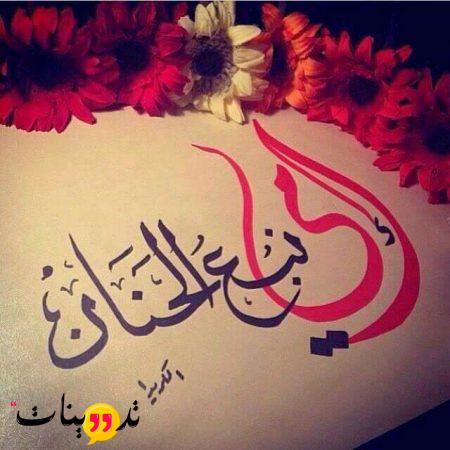 أمي
نبعُ الحَنَان
تدوينات